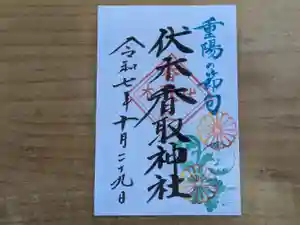 重陽の節句
伏木香取神社
令和七年十月二十九日